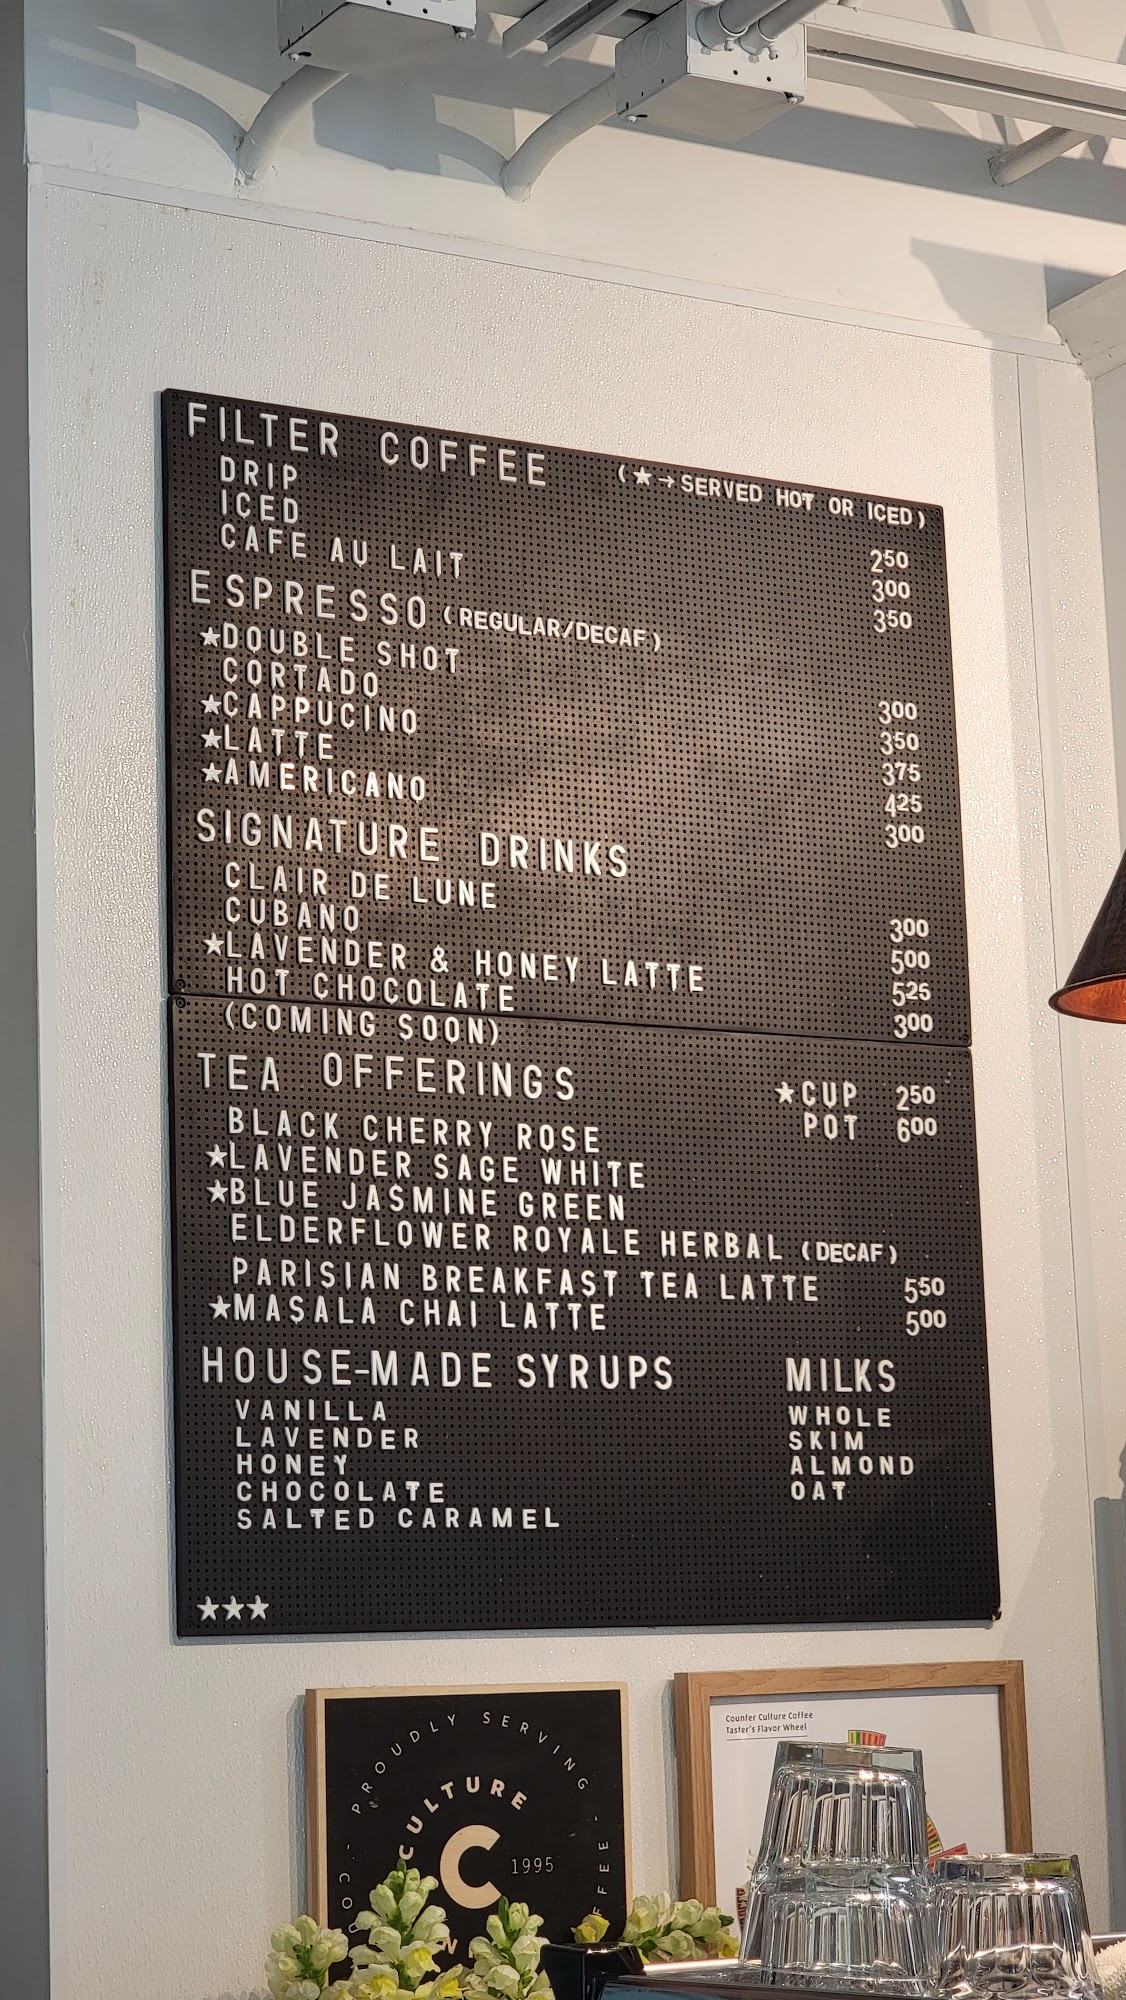 FILTER COFFEE (★→SERVED HOT OR ICED)
DRIP 250
ICED 300
CAFE AU LAIT 350
ESPRESSO (REGULAR/DECAF)
★DOUBLE SHOT 300
CORTADO 350
★CAPPUCINO 375
★LATTE 425
★AMERICANO 300
SIGNATURE DRINKS
CLAIR DE LUNE 300
CUBANO 500
★LAVENDER & HONEY LATTE 525
HOT CHOCOLATE 300
(COMING SOON)
TEA OFFERINGS ★CUP 250
POT 600
BLACK CHERRY ROSE
★LAVENDER SAGE WHITE
★BLUE JASMINE GREEN
ELDERFLOWER ROYALE HERBAL (DECAF)
PARISIAN BREAKFAST TEA LATTE 550
★MASALA CHAI LATTE 500
HOUSE-MADE SYRUPS
VANILLA
LAVENDER
HONEY
CHOCOLATE
SALTED CARAMEL
MILKS
WHOLE
SKIM
ALMOND
OAT
★★★
PROUDLY SERVING
CULTURE
C 1995
Counter Culture Coffee
Taster's Flavor Wheel